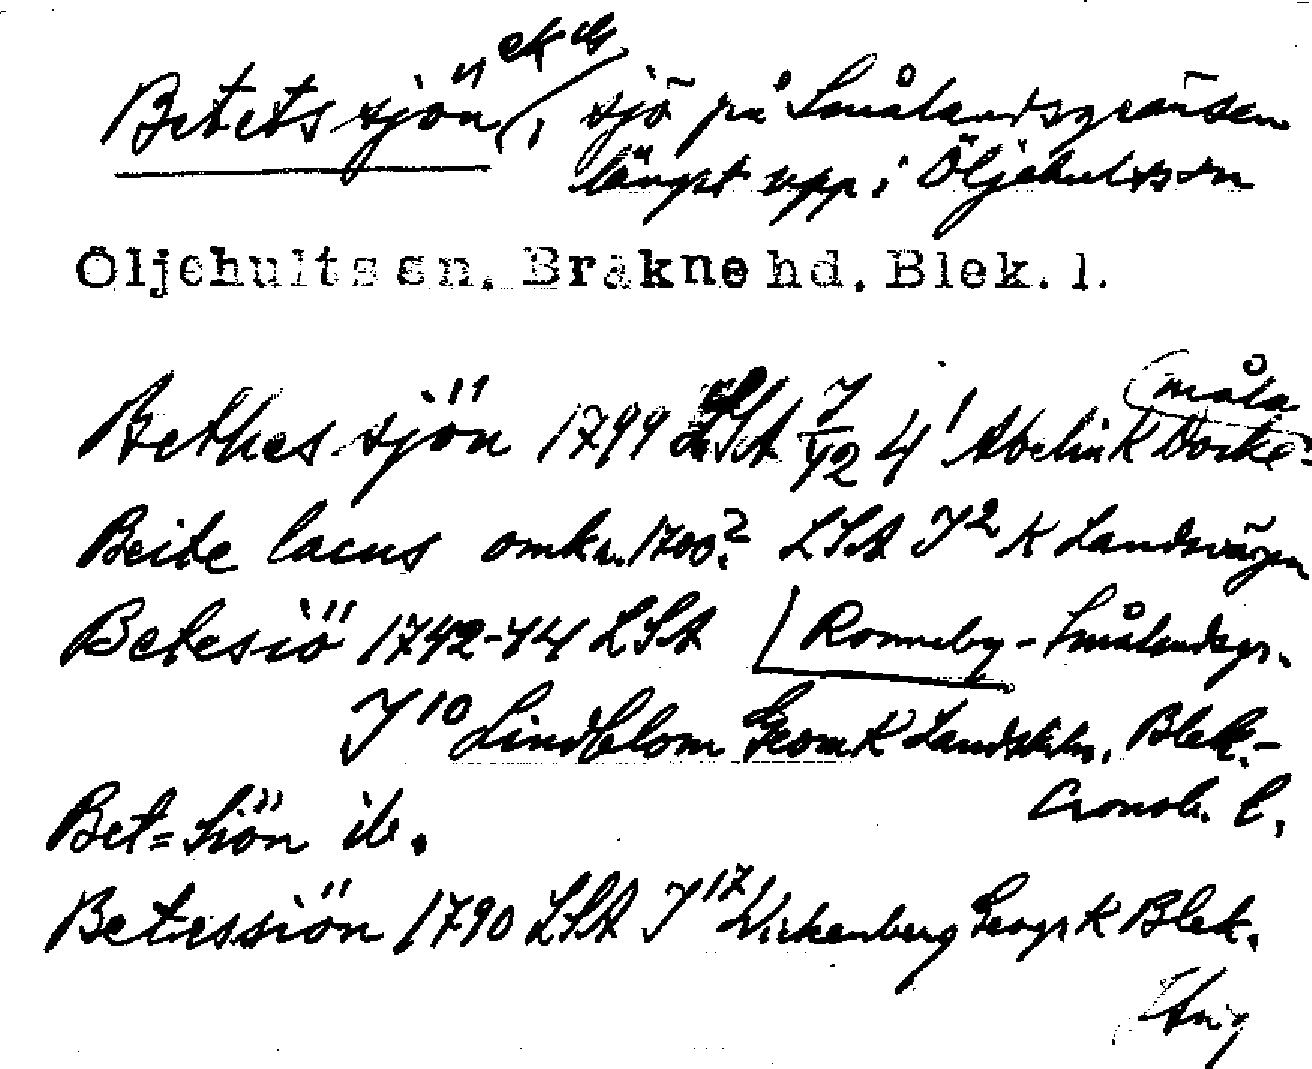 ek ds
Betetssjön, sjö på Smålandsgränsen
längst upp i Öljehultssn
Öljehults sn. Bräkne hd. Blek. l.
måla
Bethes sjön 1799 LSA 7/12 4' Abelin K Docke-
Beite lacus omkr. 1700? LSA J2 K Landsvägen
Betesiö 1742-44 LSA Ronneby - Smålandsgr.
J10 Lindblom Geom K Landskihn. Blek.-
Bet=Siön ib.
Cronob. l.
Betessiön 1790 LSA J17 Wirkenberg Geogr K Blek.